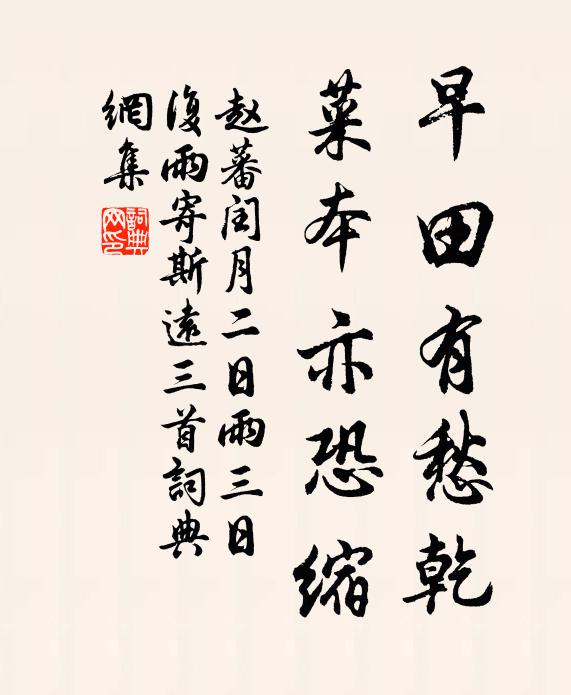 早田有愁乾
菜本亦恐缩
赵蕃闰月二日雨三日
復雨寄斯遠三首詞典
網集
詞典
网印